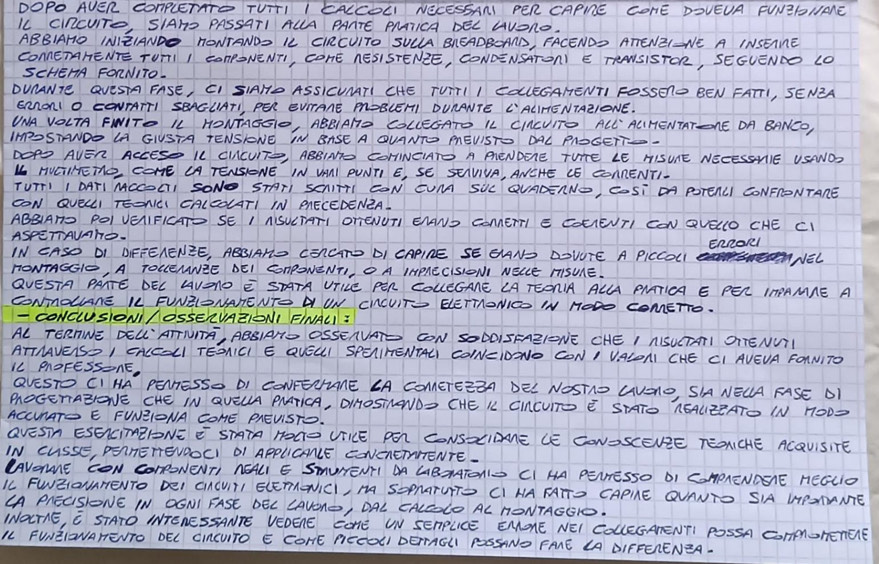 DOPO AVER COMPLETATO TUTTI I CALCOLI NECESSARI PER CAPIRE COME DOVEVA FUNZIONARE
IL CIRCUITO, SIAMO PASSATI ALLA PARTE PRATICA DEL LAVORO.
ABBIAMO INIZIANDO MONTANDO IL CIRCUITO SULLA BREADBOARD, FACENDO ATTENZIONE A INSERIRE
CORRETAMENTE TUTTI I COMPONENTI, COME RESISTENZE, CONDENSATORI E TRANSISTOR, SEGUENDO LO
SCHEMA FORNITO.
DURANTE QUESTA FASE, CI SIAMO ASSICURATI CHE TUTTI I COLLEGAMENTI FOSSERO BEN FATTI, SENZA
ERRORI O CONTATTI SBAGLIATI, PER EVITARE PROBLEMI DURANTE L'ALIMENTAZIONE.
UNA VOLTA FINITO IL MONTAGGIO, ABBIAMO COLLEGATO IL CIRCUITO ALL'ALIMENTATORE DA BANCO,
IMPOSTANDO LA GIUSTA TENSIONE IN BASE A QUANTO PREVISTO DAL PROGETTO.
DOPO AVER ACCESO IL CIRCUITO, ABBIAMO COMINCIATO A PRENDERE TUTTE LE MISURE NECESSARIE USANDO
IL MULTIMETRO, COME LA TENSIONE IN VARI PUNTI E, SE SERVIVA, ANCHE LE CORRENTI.
TUTTI I DATI RACCOLTI SONO STATI SCRITTI CON CURA SUL QUADERNO, COSÌ DA POTERLI CONFRONTARE
CON QUELLI TEORICI CALCOLATI IN PRECEDENZA.
ABBIAMO POI VERIFICATO SE I RISULTATI OTTENUTI ERANO CORRETTI E COERENTI CON QUELLO CHE CI
ASPETTAVAMO.
IN CASO DI DIFFERENZE, ABBIAMO CERCATO DI CAPIRE SE ERANO DOVUTE A PICCOLI ERRORI NEL
MONTAGGIO, A TOLLERANZE DEI COMPONENTI, O A IMPRECISIONI NELLE MISURE.
QUESTA PARTE DEL LAVORO È STATA UTILE PER COLLEGARE LA TEORIA ALLA PRATICA E PER IMPARARE A
CONTROLLARE IL FUNZIONAMENTO DI UN CIRCUITO ELETTRONICO IN MODO CORRETTO.
- CONCLUSIONI/OSSERVAZIONI FINALI:
AL TERMINE DELL'ATTIVITÀ, ABBIAMO OSSERVATO CON SODDISFAZIONE CHE I RISULTATI OTTENUTI
ATTRAVERSO I CALCOLI TEORICI E QUELLI SPERIMENTALI COINCIDONO CON I VALORI CHE CI AVEVA FORNITO
IL PROFESSORE.
QUESTO CI HA PERMESSO DI CONFERMARE LA CORRETEZZA DEL NOSTRO LAVORO, SIA NELLA FASE DI
PROGETTAZIONE CHE IN QUELLA PRATICA, DIMOSTRANDO CHE IL CIRCUITO È STATO REALIZZATO IN MODO
ACCURATO E FUNZIONA COME PREVISTO.
QUESTA ESERCITAZIONE È STATA MOLTO UTILE PER CONSOLIDARE LE CONOSCENZE TEORICHE ACQUISITE
IN CLASSE, PERMETTENDOCI DI APPLICARLE CONCRETAMENTE.
LAVORARE CON COMPONENTI REALI E STRUMENTI DA LABORATORIO CI HA PERMESSO DI COMPRENDERE MEGLIO
IL FUNZIONAMENTO DEI CIRCUITI ELETTRONICI, MA SOPRATUTTO CI HA FATTO CAPIRE QUANTO SIA IMPORTANTE
LA PRECISIONE IN OGNI FASE DEL LAVORO, DAL CALCOLO AL MONTAGGIO.
INOLTRE, È STATO INTERESSANTE VEDERE COME UN SEMPLICE ERRORE NEI COLLEGAMENTI POSSA COMPROMETTERE
IL FUNZIONAMENTO DEL CIRCUITO E COME PICCOLI DETTAGLI POSSANO FARE LA DIFFERENZA.